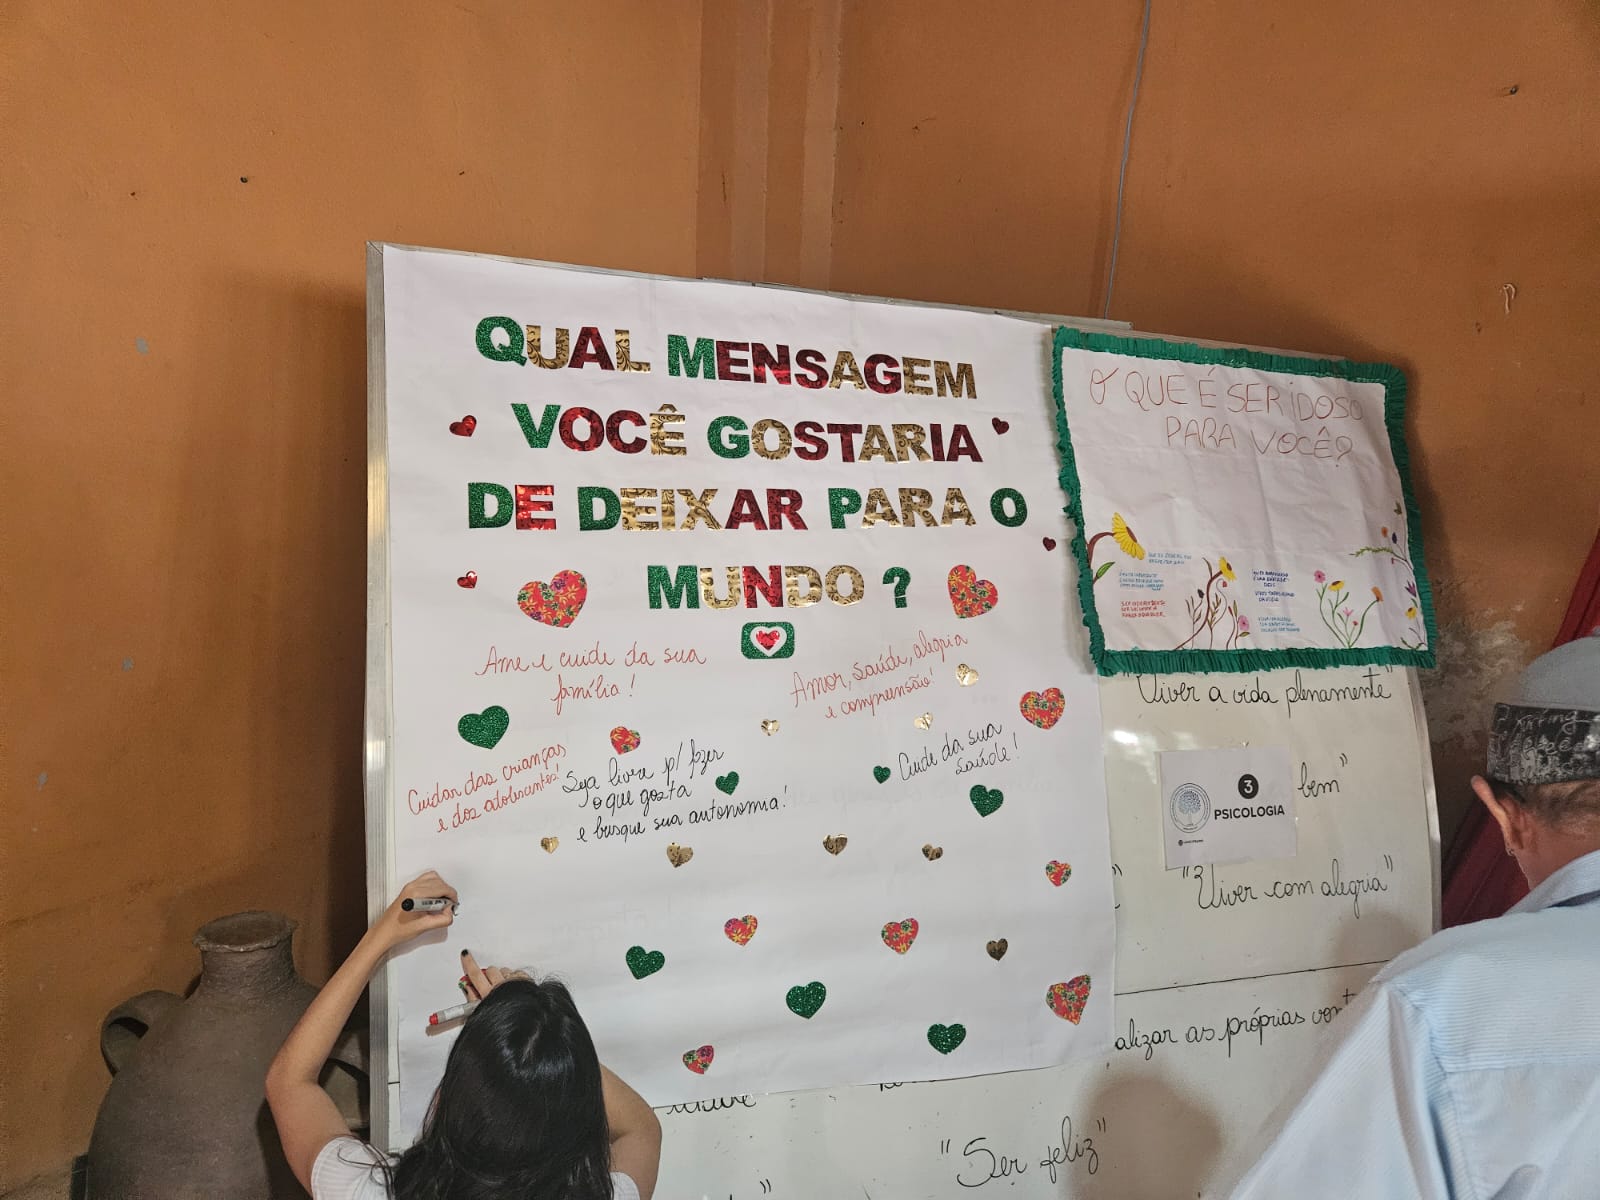 QUAL MENSAGEM
VOCÊ GOSTARIA
DE DEIXAR PARA O
MUNDO ?
Ame e cuide da sua
família !
Amor, saúde, alegria
e compreensão!
Cuidar das crianças
e dos adolescentes!
Seja livre p/ fazer
o que gosta
e busque sua autonomia!
Cuide da sua
saúde!
O QUE É SER IDOSO
PARA VOCÊ?
"Viver a vida plenamente"
bem"
3
PSICOLOGIA
"Viver com alegria"
alizar as próprias von
"Ser feliz"